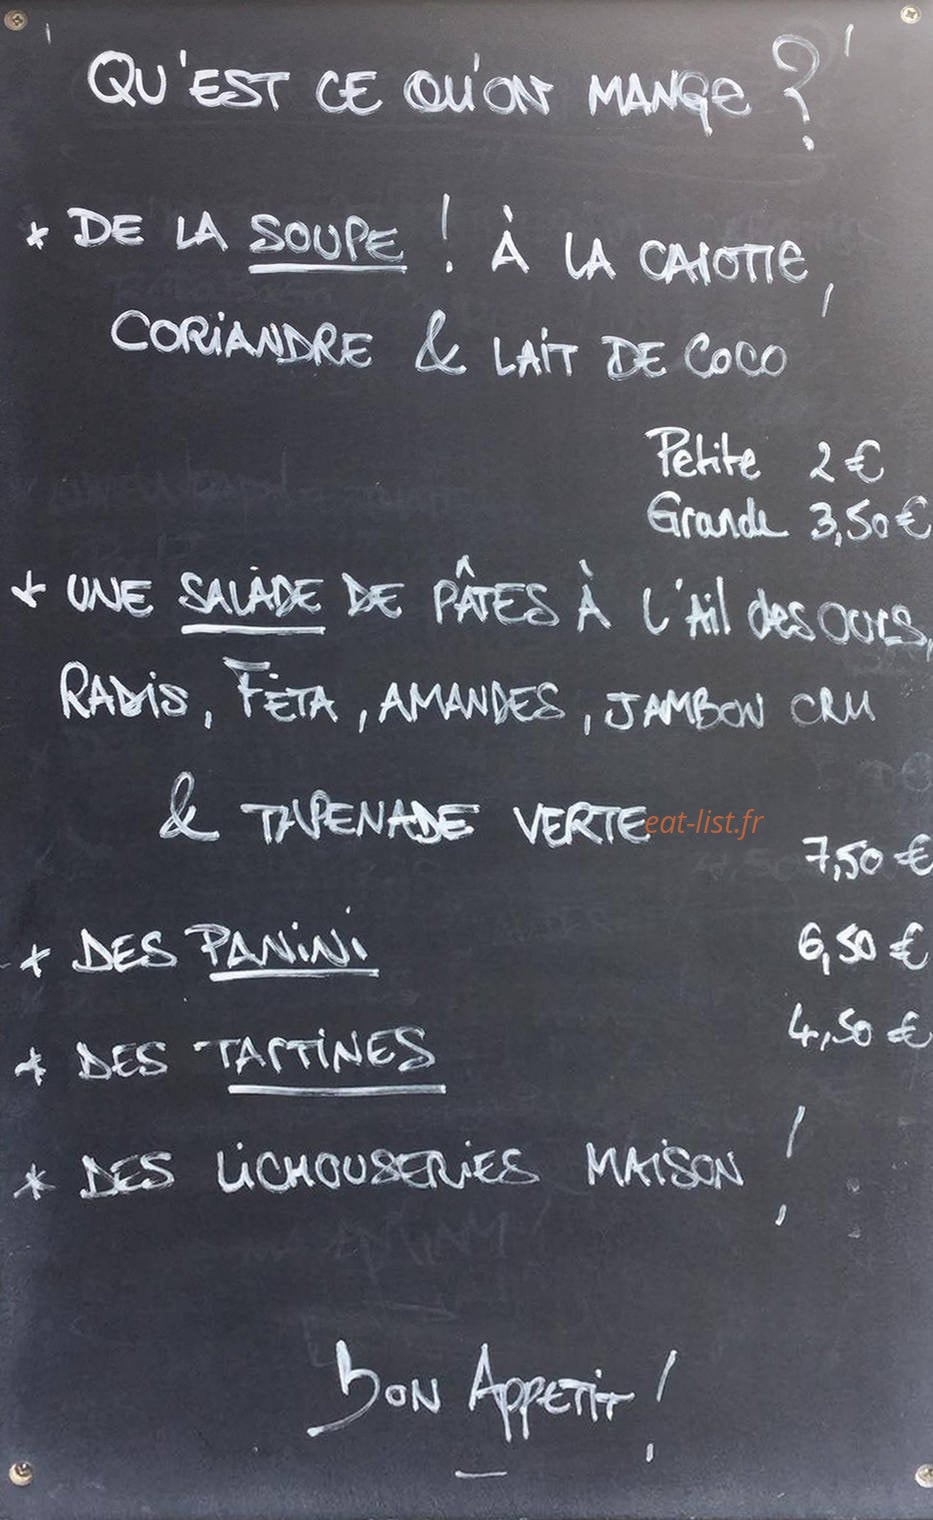 QU'EST CE QU'ON MANGE ?
* DE LA SOUPE ! À LA CAROTTE,
CORIANDRE & LAIT DE COCO
Petite 2 €
Grande 3,50 €
* UNE SALADE DE PÂTES À L'Ail des OURS,
RADIS, FETA, AMANDES, JAMBON CRU
& TAPENADE VERTE
eat-list.fr
7,50 €
* DES PANINI 6,50 €
* DES TARTINES 4,50 €
* DES LICHOUSERIES MAISON !
BON APPETIT !